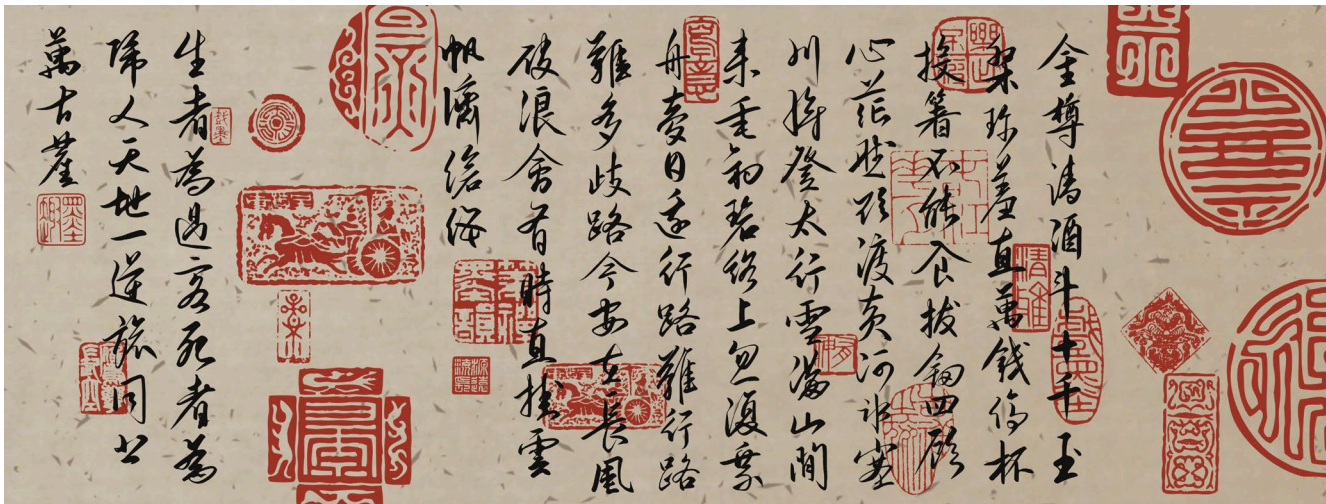 金樽清酒斗十千玉
槃珍羞直萬錢停杯
投箸不能食拔劍四顧
心茫然欲渡黃河冰塞
川將登太行雪滿山閒
來垂釣碧谿上忽復乘
舟夢日邊行路難行路
難多歧路今安在長風
破浪會有時直挂雲
帆濟滄海
生者為過客死者為
歸人天地一逆旅同悲
萬古塵